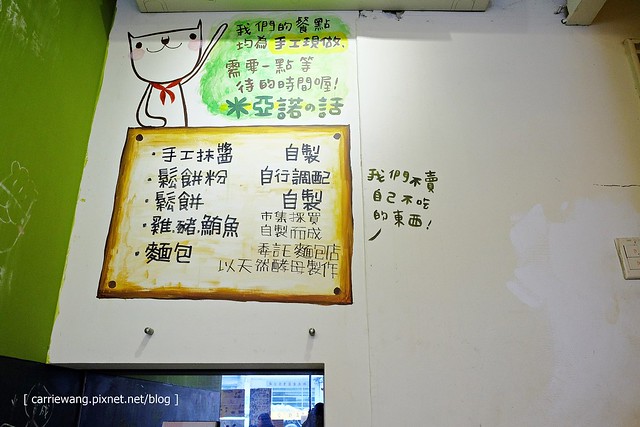 我們的餐點
均為手工現做,
需要一點等
待的時間喔!
米亞諾の話
·手工抹醬 自製
·鬆餅粉 自行調配
·鬆餅 自製
·雞.豬.鮪魚 市集採買
自製而成
·麵包 委託麵包店
以天然酵母製作
我們不賣
自己不吃
的東西!
[ carriewang.pixnet.net/blog ]